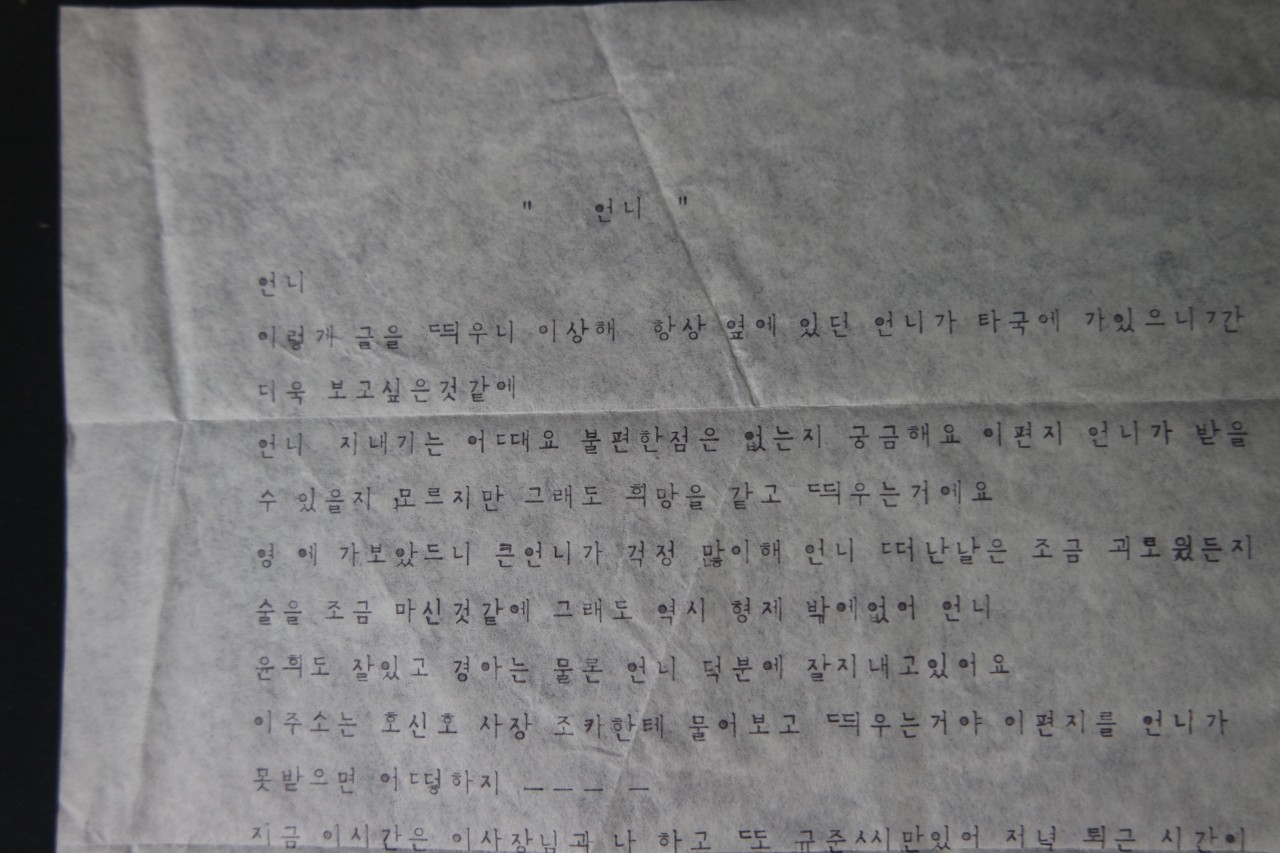 " 언니 "
언니
이렇개 글을 띄우니 이상해 항상 옆에 있던 언니가 타국에 가있으니
더욱 보고싶은것같에
언니 지내기는 어때요 불편한점은 없는지 궁금해요 이편지 언니가 받을
수 있을지 모르지만 그래도 희망을 같고 띄우는거에요
영 에 가보았드니 큰언니가 걱정 많이해 언니 떠난날은 조금 괴로웠든지
술을 조금 마신것같에 그래도 역시 형제 밖에없어 언니
윤희도 잘있고 경아는 물론 언니 덕분에 잘지내고있어요
이주소는 호신호 사장 조카한테 물어보고 띄우는거야 이편지를 언니가
못받으면 어떻하지 _ _ _ _
지금 이시간은 이사장님과 나 하고 또 규준씨만있어 저녁 퇴근 시간이